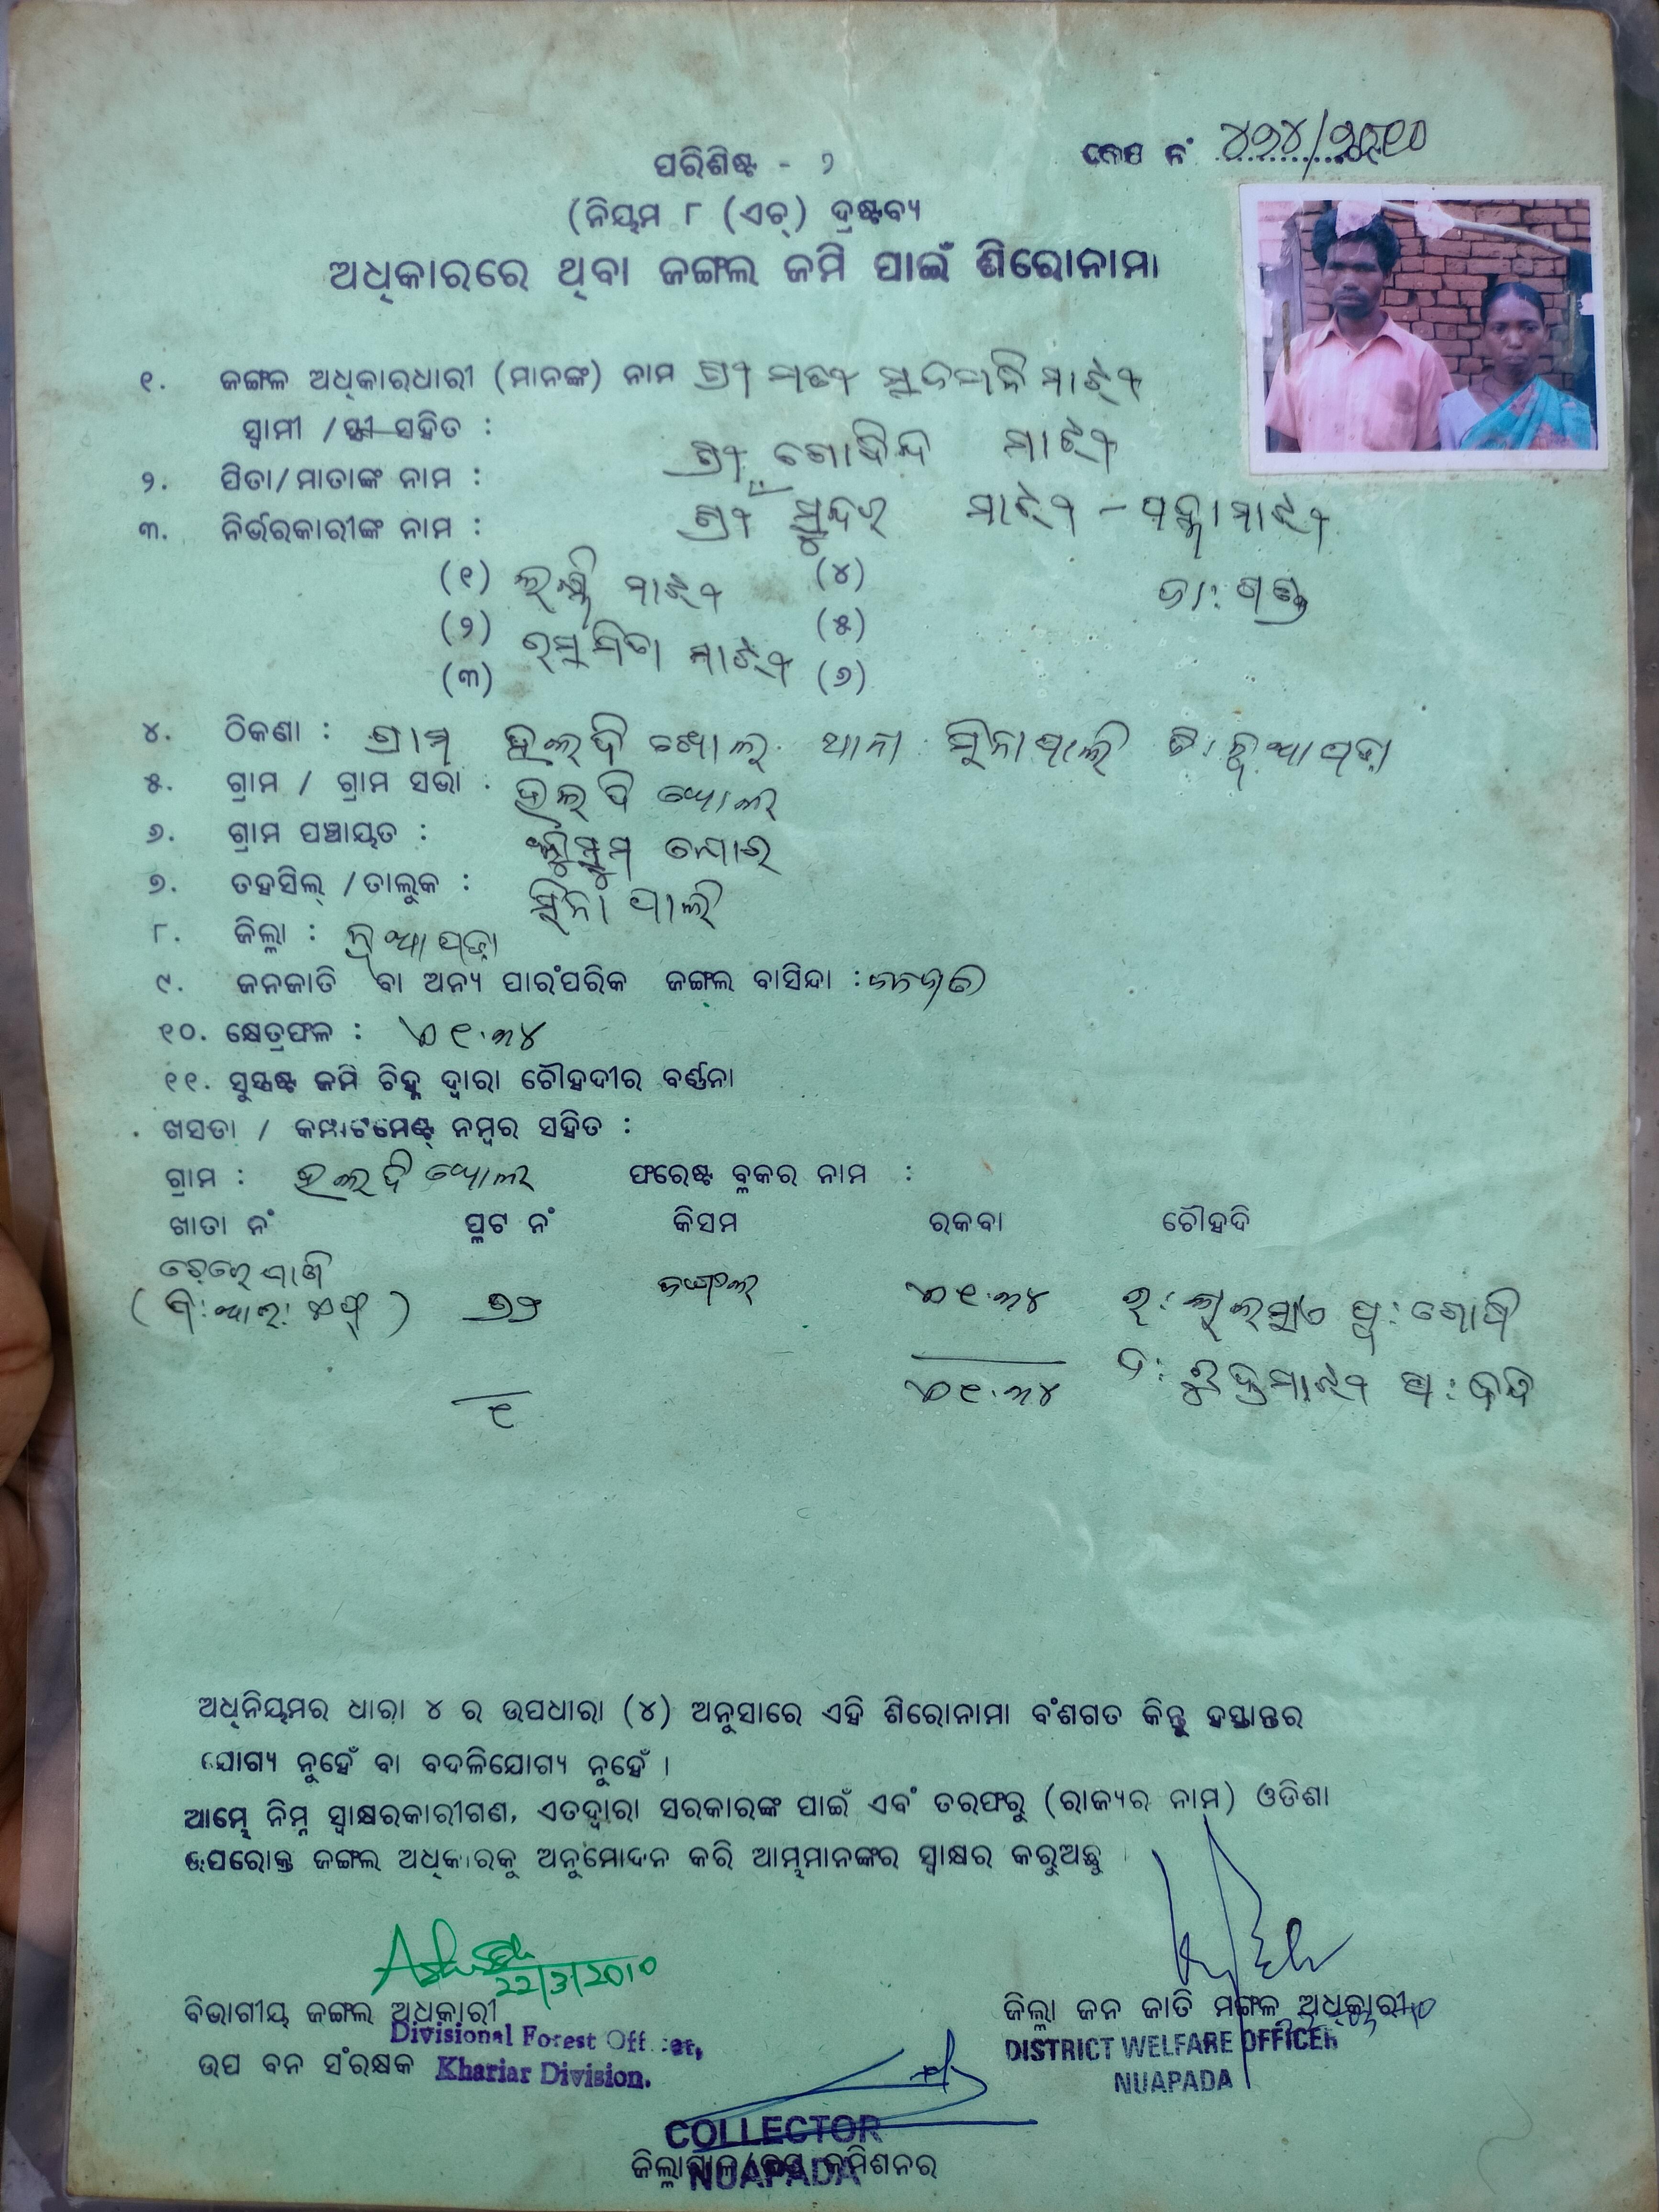 କେଶ ନଂ ୪୨୪/୨୦୧୦
ପରିଶିଷ୍ଟ - ୨
(ନିୟମ ୮ (ଏଚ୍) ଦ୍ରଷ୍ଟବ୍ୟ
ଅଧିକାରରେ ଥିବା ଜଙ୍ଗଲ ଜମି ପାଇଁ ଶିରୋନାମା
୧. ଜଙ୍ଗଲ ଅଧିକାରଧାରୀ (ମାନଙ୍କ) ନାମ ଶ୍ରୀ ମାଝୀ
ସ୍ୱାମୀ / ସ୍ତ୍ରୀ ସହିତ : ଶ୍ରୀ ଗୋବିନ୍ଦ ମାଝୀ
୨. ପିତା/ମାତାଙ୍କ ନାମ :
୩. ନିର୍ଭରକାରୀଙ୍କ ନାମ : ଶ୍ରୀ ସୁନ୍ଦର ମାଝୀ - ମାଝୀ
(୧) ମାଝୀ (୪) ଜା: ଗଣ୍ଡ
(୨) ମାଝୀ (୫)
(୩) (୬)
୪. ଠିକଣା : ଗ୍ରାମ ହଲଦିଖୋଲ ଥାନା ସିନାପାଲି ଜି: ନୂଆପଡ଼ା
୫. ଗ୍ରାମ / ଗ୍ରାମ ସଭା : ହଲଦିଖୋଲ
୬. ଗ୍ରାମ ପଞ୍ଚାୟତ :
୭. ତହସିଲ୍ /ତାଲୁକ : ସିନାପାଲି
୮. ଜିଲ୍ଲା : ନୂଆପଡ଼ା
୯. ଜନଜାତି ବା ଅନ୍ୟ ପାରଂପରିକ ଜଙ୍ଗଲ ବାସିନ୍ଦା : ଜନଜାତି
୧୦. କ୍ଷେତ୍ରଫଳ : ଏ ୧.୩୪
୧୧. ସୁସ୍ପଷ୍ଟ ଜମି ଚିହ୍ନ ଦ୍ୱାରା ଚୌହଦୀର ବର୍ଣ୍ଣନା
ଖସଡା / କମ୍ପାଟମେଣ୍ଟ୍ ନମ୍ବର ସହିତ :
ଗ୍ରାମ : ହଲଦିଖୋଲ ଫରେଷ୍ଟ ବ୍ଲକର ନାମ :
ଖାତା ନଂ ପ୍ଲଟ ନଂ କିସମ ରକବା ଚୌହଦି
(ଦି: ଆର: ଏଫ୍) ଜଙ୍ଗଲ ଏ ୧.୩୪
୧ ଏ ୧.୩୪ ମାଝୀ
ଅଧିନିୟମର ଧାରା ୪ ର ଉପଧାରା (୪) ଅନୁସାରେ ଏହି ଶିରୋନାମା ବଂଶଗତ କିନ୍ତୁ ହସ୍ତାନ୍ତର
ଯୋଗ୍ୟ ନୁହେଁ ବା ବଦଳିଯୋଗ୍ୟ ନୁହେଁ ।
ଆମ୍ଭେ ନିମ୍ନ ସ୍ୱାକ୍ଷରକାରୀଗଣ, ଏତଦ୍ୱାରା ସରକାରଙ୍କ ପାଇଁ ଏବଂ ତରଫରୁ (ରାଜ୍ୟର ନାମ) ଓଡିଶା
ଉପରୋକ୍ତ ଜଙ୍ଗଲ ଅଧିକାରକୁ ଅନୁମୋଦନ କରି ଆମ୍ଭମାନଙ୍କର ସ୍ୱାକ୍ଷର କରୁଅଛୁ ।
22/3/2010
ବିଭାଗୀୟ ଜଙ୍ଗଲ ଅଧିକାରୀ
Divisional Forest Officer,
ଉପ ବନ ସଂରକ୍ଷକ Khariar Division.
ଜିଲ୍ଲା ଜନ ଜାତି ମଙ୍ଗଳ ଅଧିକାରୀ
DISTRICT WELFARE OFFICER
NUAPADA
COLLECTOR
ଜିଲ୍ଲାପାଳ/ଡେପୁଟି କମିଶନର
NUAPADA